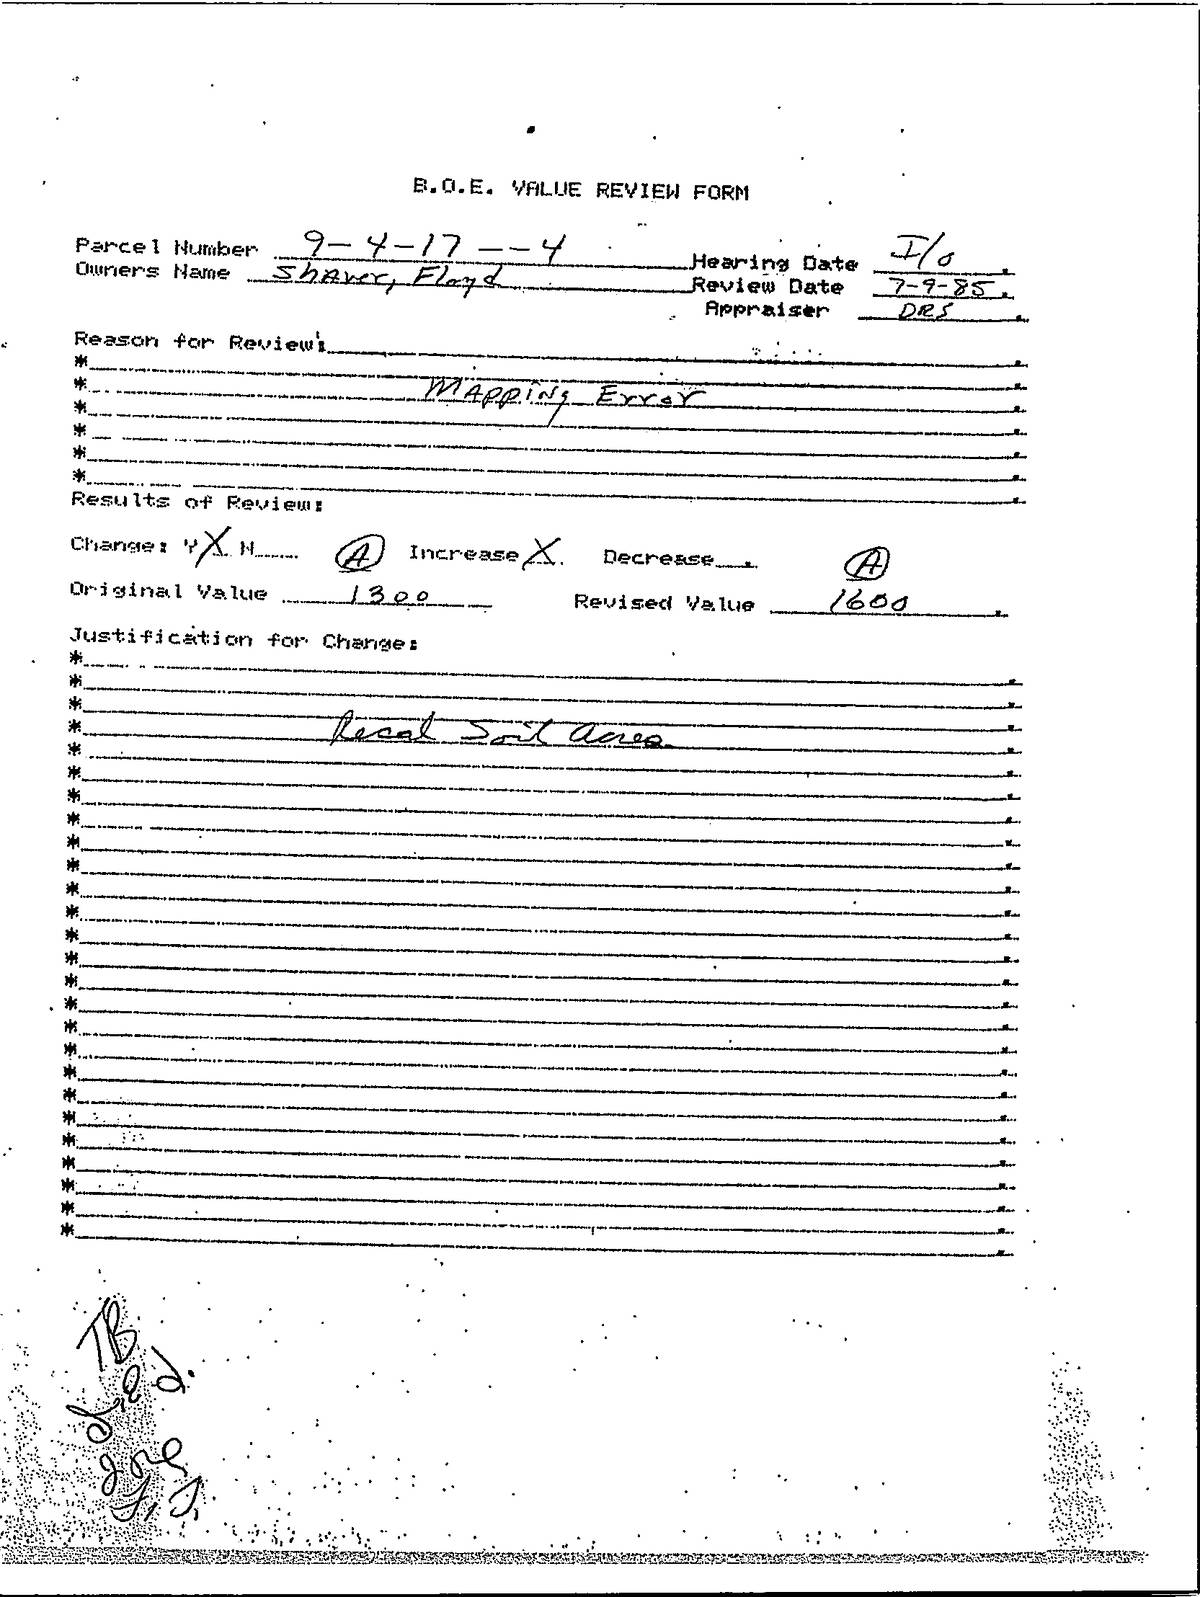 B.O.E. VALUE REVIEW FORM
Parcel Number 9-4-17--4
Hearing Date I/o
Owners Name Shaver, Floyd
Review Date 7-9-85
Appraiser DRS
Reason for Review:
*
* Mapping Error
*
*
*
*
Results of Review:
Change: Y X N Ⓐ Increase X. Decrease . Ⓐ
Original Value 1300 Revised Value 1600
Justification for Change:
*
*
*
* Recal Soil Acres
*
*
*
*
*
*
*
*
*
*
*
*
*
*
*
*
*
*
*
*
*
*
TB